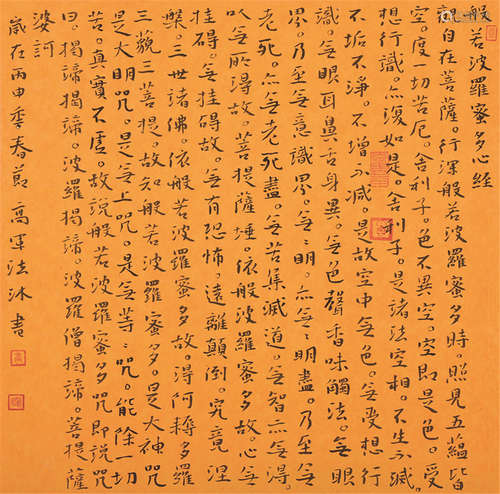 般若波羅蜜多心經
觀自在菩薩。行深般若波羅蜜多時。照見五蘊皆
空。度一切苦厄。舍利子。色不異空。空即是色。受
想行識。亦復如是。舍利子。是諸法空相。不生不滅。
不垢不淨。不增不減。是故空中無色。無受想行
識。無眼耳鼻舌身異。無色聲香味觸法。無眼
界。乃至無意識界。無無明。亦無無明盡。乃至無
老死。亦無老死盡。無苦集滅道。無智亦無得。
以無所得故。菩提薩埵。依般若波羅蜜多故。心無
挂碍。無挂碍故。無有恐怖。遠離顛倒。究竟涅
槃。三世諸佛。依般若波羅蜜多故。得阿耨多羅
三藐三菩提。故知般若波羅蜜多。是大神咒
是大明咒。是無上咒。是無等等咒。能除一切
苦。真實不虛。故說般若波羅蜜多咒即說咒
曰。揭諦揭諦。波羅揭諦。波羅僧揭諦。菩提薩
婆訶
歲在丙申季春節 高軍法沐書